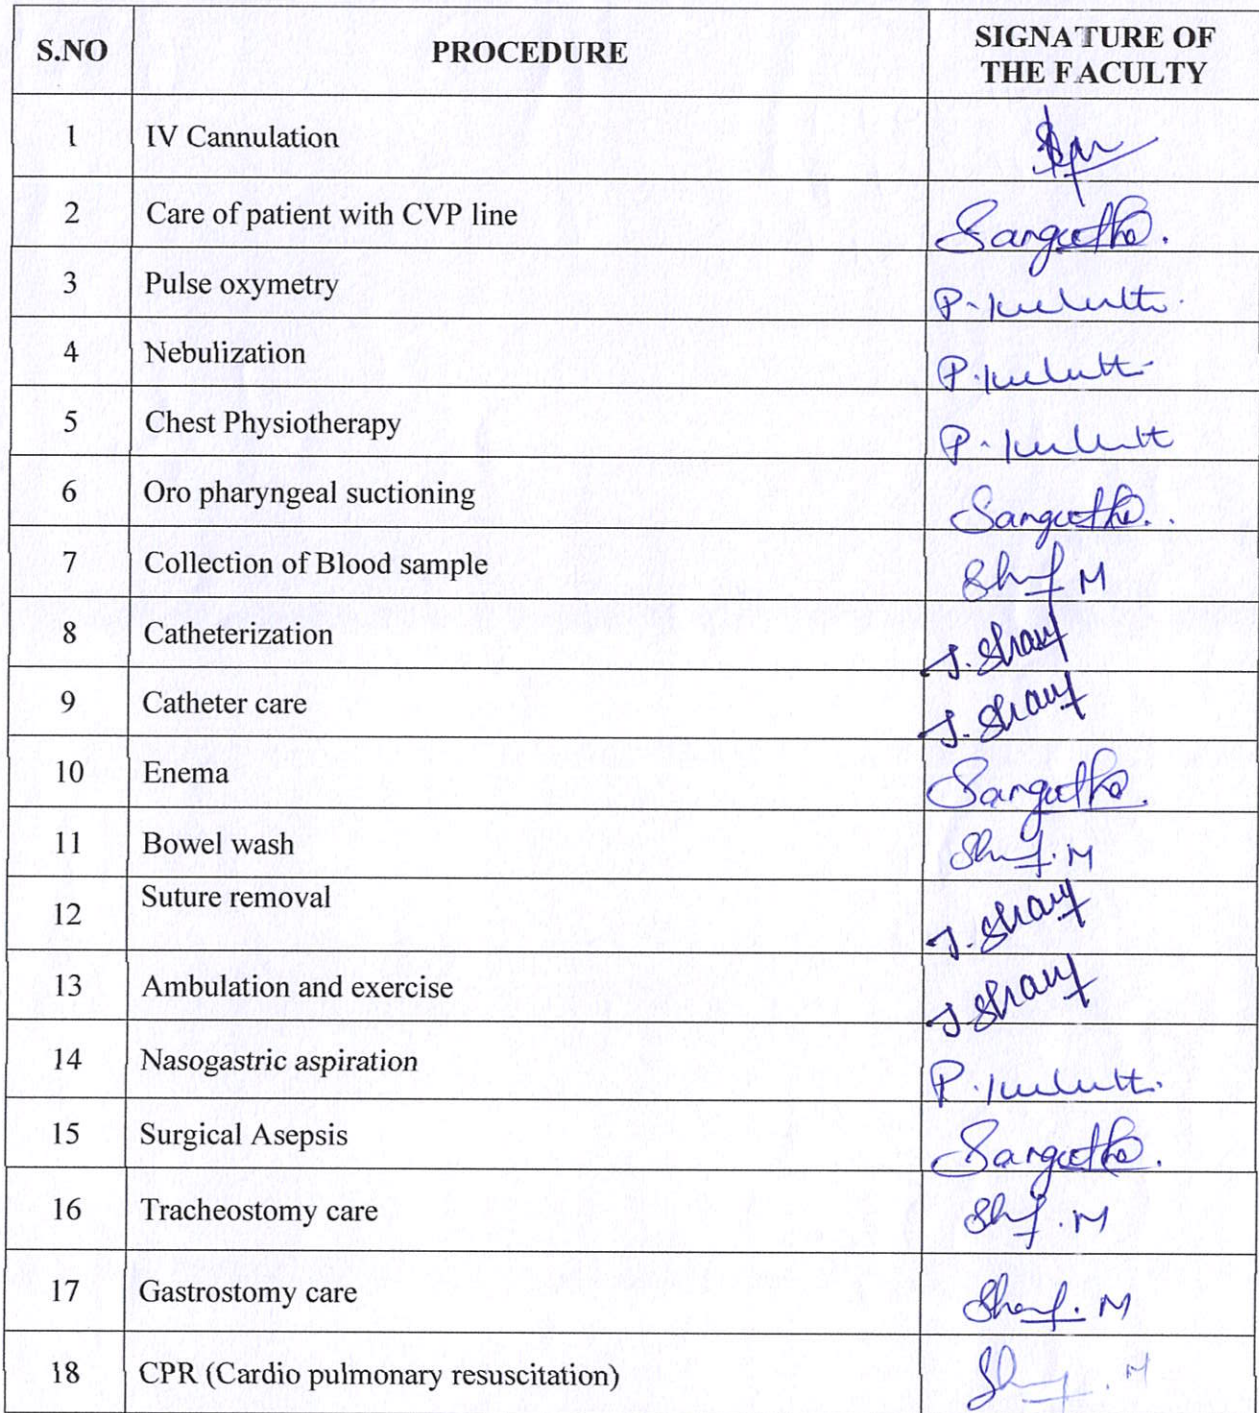 S.NO PROCEDURE SIGNATURE OF
THE FACULTY
1 IV Cannulation
2 Care of patient with CVP line Sangeetha.
3 Pulse oxymetry
4 Nebulization
5 Chest Physiotherapy
6 Oro pharyngeal suctioning Sangeetha..
7 Collection of Blood sample
8 Catheterization
9 Catheter care
10 Enema Sangeetha.
11 Bowel wash
12 Suture removal
13 Ambulation and exercise
14 Nasogastric aspiration
15 Surgical Asepsis Sangeetha.
16 Tracheostomy care
17 Gastrostomy care
18 CPR (Cardio pulmonary resuscitation)